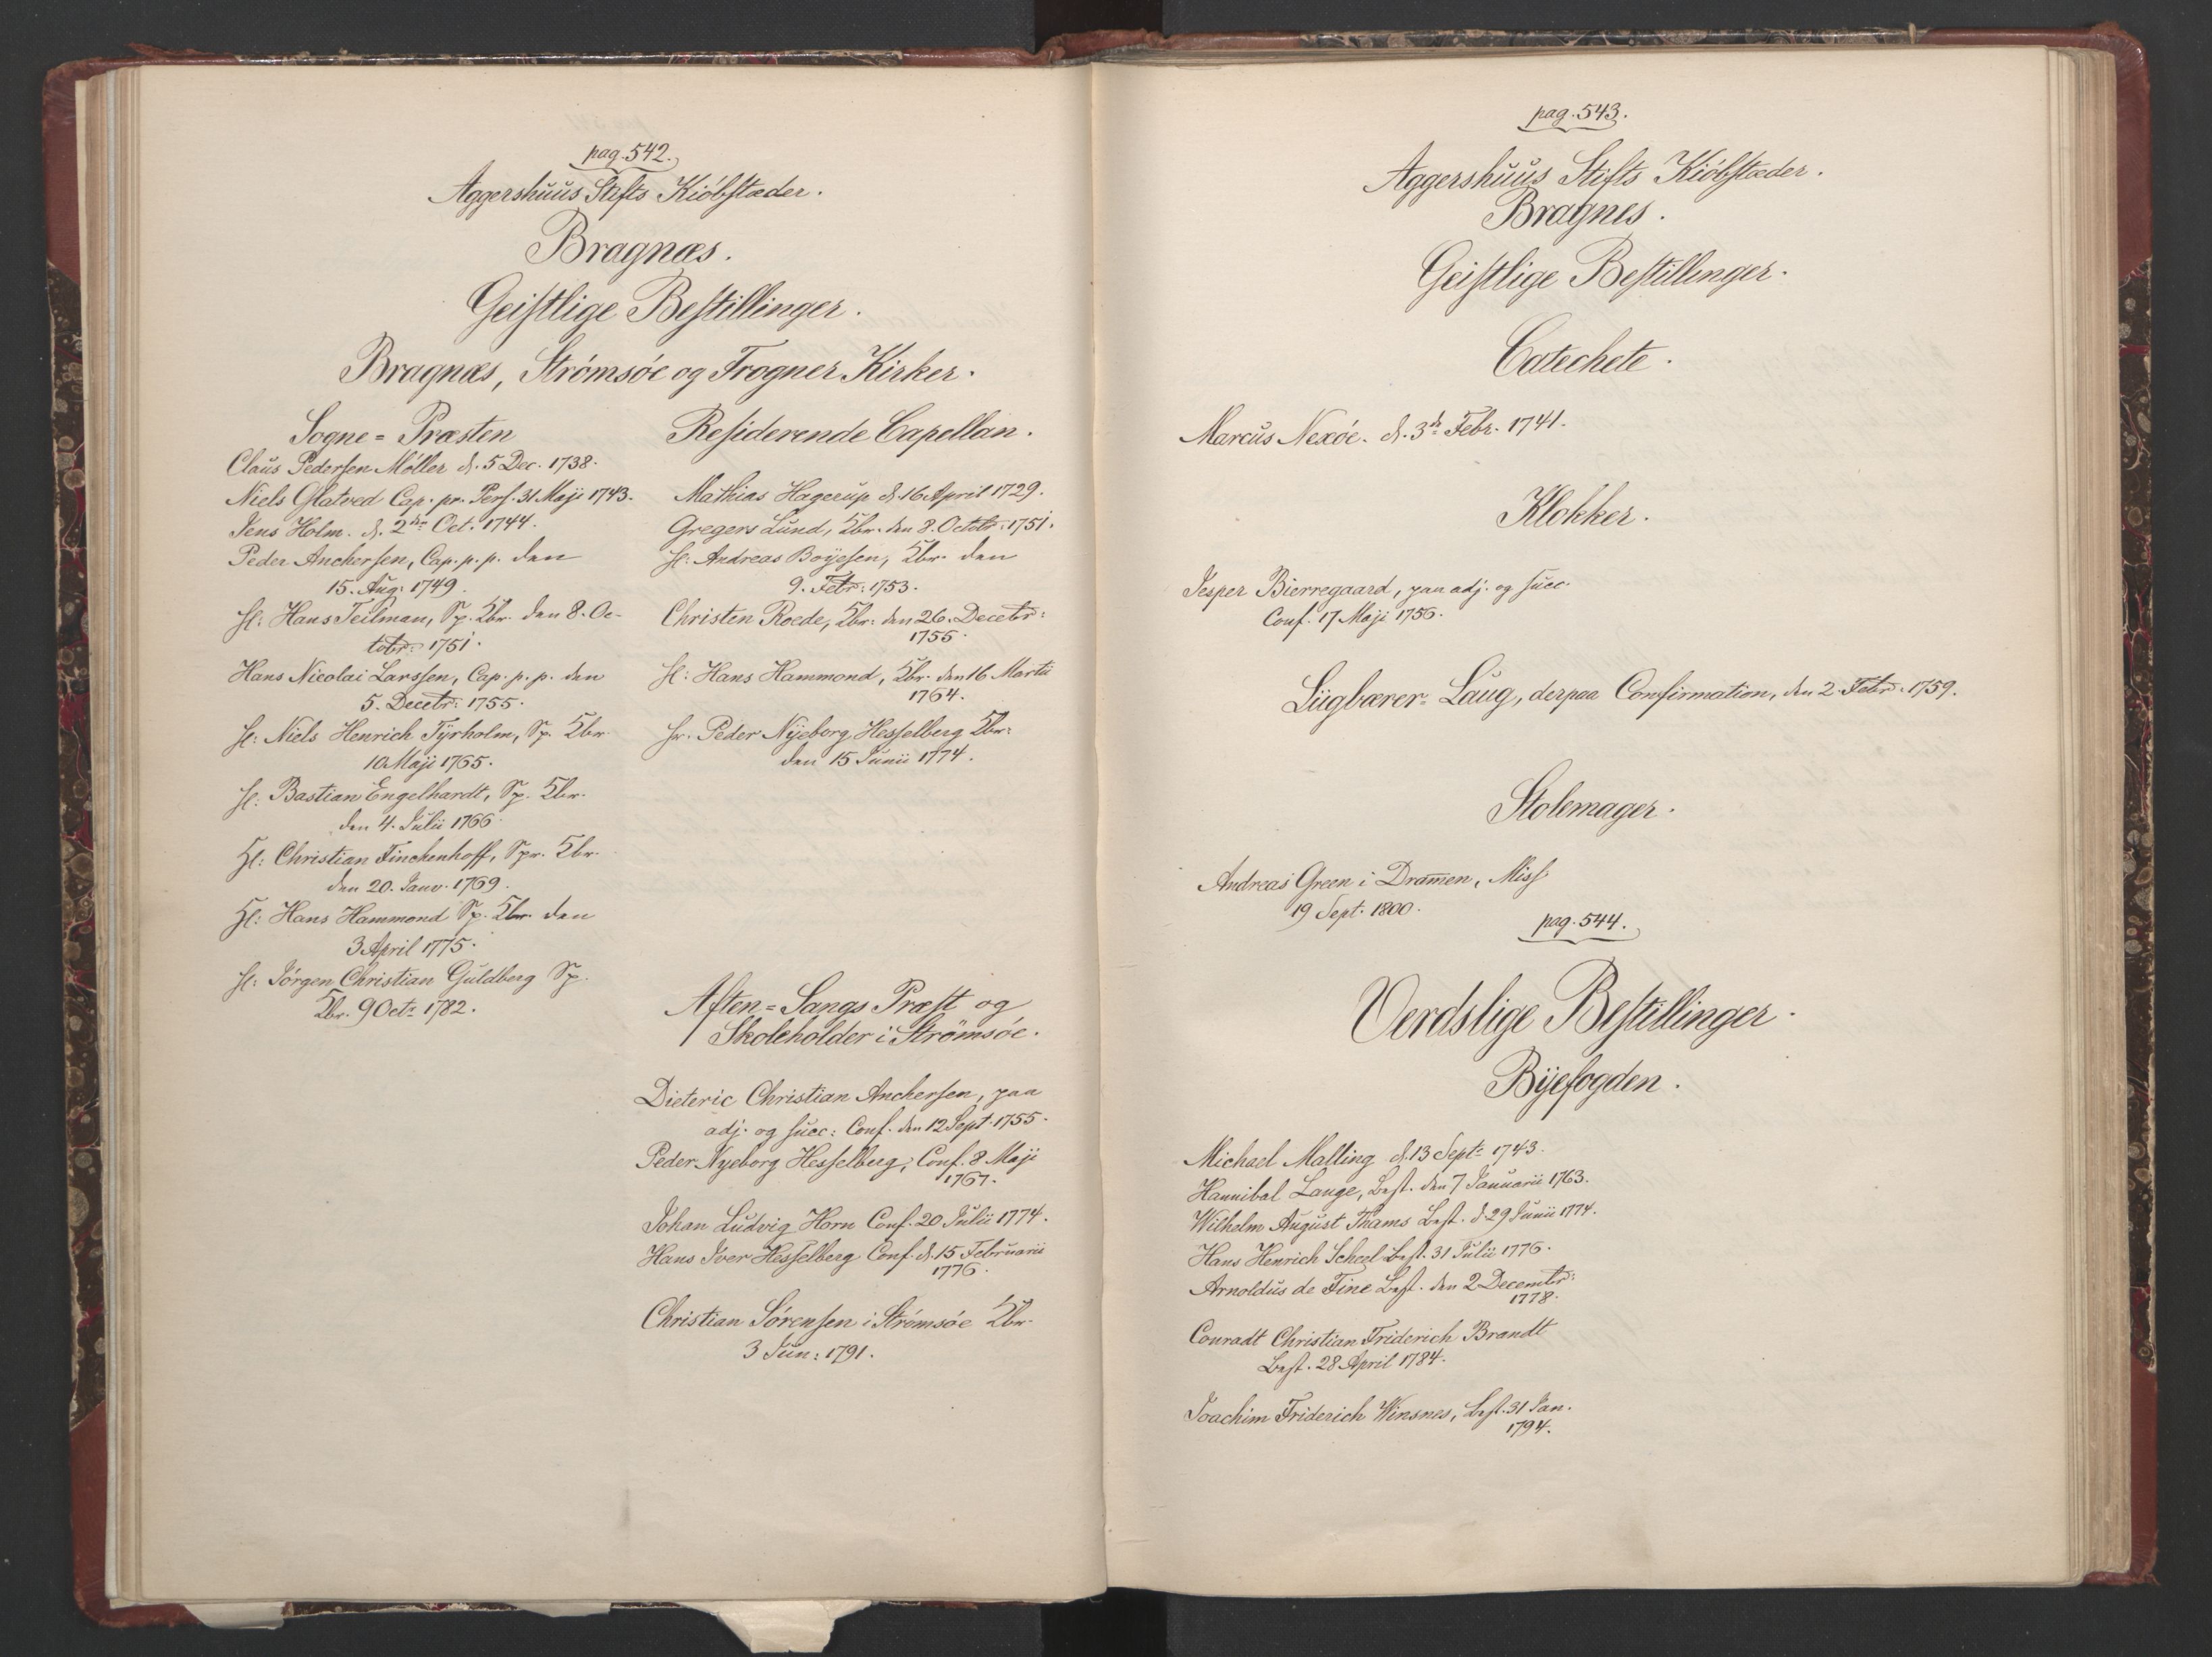 pag. 542.
Aggershuus Stifts Kiöbstæder.
Bragnæs.
Geistlige Bestillinger.
Bragnæs, Strömsöe og Frogner Kirker.
Sogne=Præsten
Claus Pedersen Möller d. 5 Dec. 1738.
Niels Glatved Cap. pr. Pers. 31 Maji 1743.
Jens Holm. d. 2den Oct. 1744.
Peder Anchersen, Cap. p. p. den
15. Aug: 1749.
Hans Teilman, Sp. Kbr. den 8. Oc-
tobr: 1751.
Hans Nicolai Larssen, Cap. p. p. den
5. Decebr: 1755.
Niels Henrich Tÿrholm, Sp. Kbr.
10 Maji 1765.
Bastian Engelhardt, Sp. Kbr.
den 4. Julii 1766.
Christian Finckenhoff, Spr. Kbr.
den 20. Janv. 1769.
Hans Hammond Sp. Kbr. den
3 April 1775.
Jörgen Christian Guldberg Sp.
Kbr. 9 Octr 1782.
Residerende Capellan.
Mathias Hagerup d. 16 April 1729.
Gregers Lund, Kbr. den 8. Octobr: 1751.
Andreas Boÿesen, Kbr. den
9. Febr: 1753.
Christen Roede, Kbr: den 26. Decebr:
1755.
Hans Hammond, Kbr. den 16 Martii
1764.
Hr. Peder Nÿeborg Hesselberg Kbr:
den 15 Junii 1774.
Aften=Sangs Præst og
Skoleholder i Strömsöe.
Dieteric Christian Anchersen, paa
adj. og succ: Conf. den 12 Sept. 1755.
Peder Nyeborg Hesselberg, Conf. 8 Maji
1767.
Johan Ludvig Horn Conf. 20 Julii 1774.
Hans Iver Hesselberg Conf. d. 15 Februarii
1776.
Christian Sörensen i Strömsöe Kbr.
3 Jun: 1791.
pag. 543.
Aggershuus Stifts Kiöbstæder.
Bragnes.
Geistlige Bestillinger.
Catechete.
Marcus Nexöe. d. 3d Febr. 1741.
Klokker.
Jesper Bierregaard, paa adj. og succ.
Conf. 17 Maji 1756.
Liigbærer=Laug, derpaa Confirmation, den 2. Febr: 1759.
Stolemager.
Andreas Green i Dramen, Miss
19 Sept. 1800.
pag. 544.
Verdslige Bestillinger.
Bÿefogden.
Michael Malling d. 13 Septr 1743.
Hannibal Lange, Best. den 7 Januarii 1763.
Wilhelm August Thams Best. d 29 Junii 1774.
Hans Henrich Scheel Best. 31 Julii 1776.
Arnoldus de Fine Best. den 2 Decembr:
1778.
Conradt Christian Friderich Brandt
Best. 28 April 1784.
Joachim Friderich Winsnes, Best. 31 Jan.
1794.